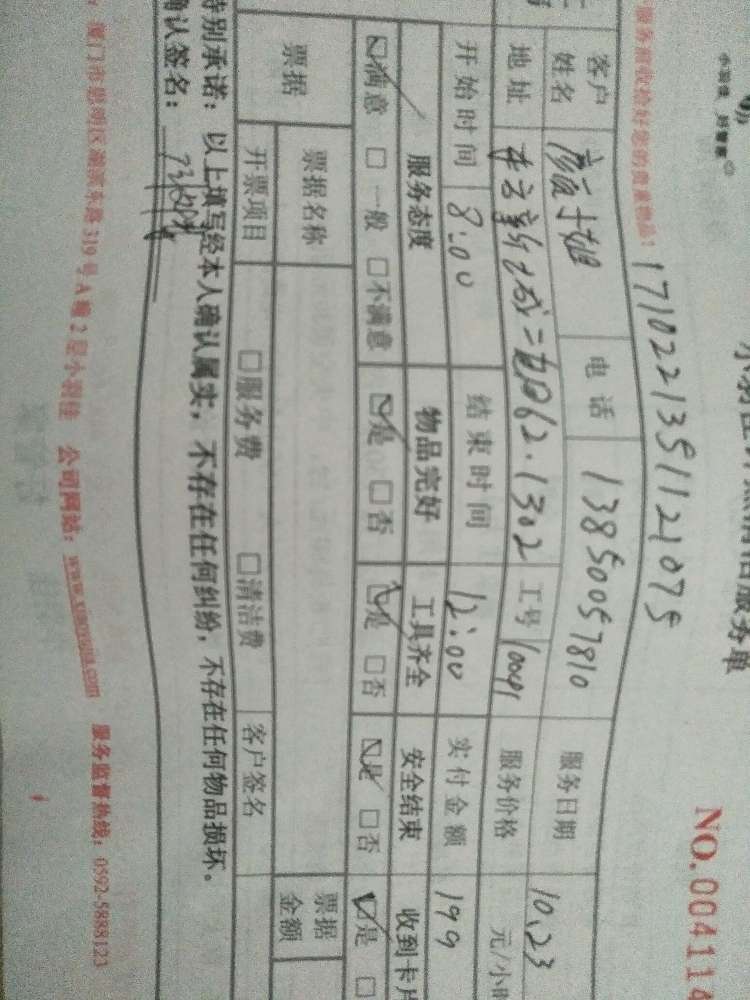 NO.004114
1710221351121075
服务前收拾好您的贵重物品！
客户姓名 电话 13850057810 服务日期 10.23
地址 1302 工号 10091 服务价格 元/小时
开始时间 8:00 结束时间 12:00 实付金额 199
服务态度 物品完好 工具齐全 安全结束 收到卡片
☑满意 □一般 □不满意 ☑是 □否 ☑是 □否 ☑是 □否 ☑是 □
票据 票据名称 票据金额
开票项目 □服务费 □清洁费 客户签名
特别承诺：以上填写经本人确认属实，不存在任何纠纷，不存在任何物品损坏。
确认签名：
厦门市思明区湖滨东路319号A幢2层小羽佳 公司网站：www.xiaoyujia.com 服务监督热线：0592-5888123